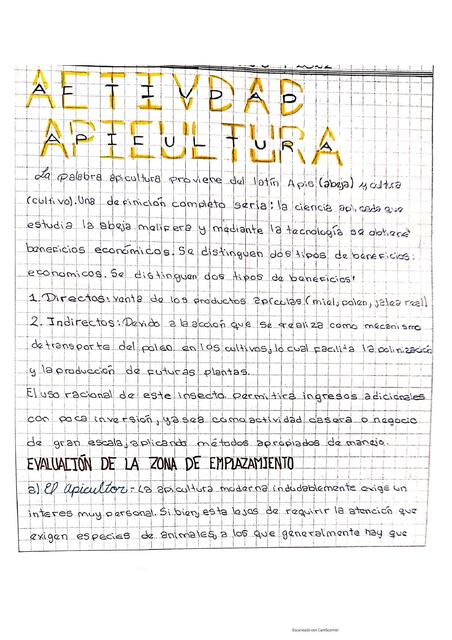 AETIVDAD
APIEULTURA
La palabra apicultura proviene del latín Apis (abeja) y cultra
(cultivo). Una definición completo seria: la ciencia aplicada que
estudia la abeja melifera y mediante la tecnología se obtiene
beneficios económicos. Se distinguen dos tipos de beneficios:
economicos. Se distinguen dos tipos de beneficios:
1. Directos: venta de los productos apículas (miel, polen, jalea real)
2. Indirectos: Devido a la acción que se realiza como mecanismo
de transporte del polen en los cultivos, lo cual facilita la polinización
y la producción de futuras plantas.
El uso racional de este insecto permitira ingresos adicionales
con poca inversión, ya sea como actividad casera o negocio
de gran escala, aplicando métodos apropiados de manejo.
EVALUACIÓN DE LA ZONA DE EMPLAZAMIENTO
a) El Apicultor = La apicultura moderna indudablemente exige un
interes muy personal. Si bien, esta lejos de requirir la atención que
exigen especies de animales, a los que generalmente hay que
Escaneado con CamScanner